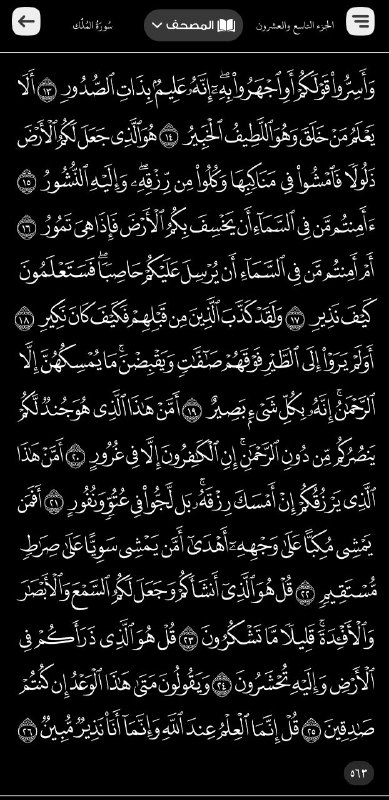 الجزء التاسع والعشرون المصحف سُورَةُ المُلْك
وَأَسِرُّوا۟ قَوْلَكُمْ أَوِ ٱجْهَرُوا۟ بِهِۦٓ إِنَّهُۥ عَلِيمٌۢ بِذَاتِ ٱلصُّدُورِ ١٣ أَلَا
يَعْلَمُ مَنْ خَلَقَ وَهُوَ ٱللَّطِيفُ ٱلْخَبِيرُ ١٤ هُوَ ٱلَّذِى جَعَلَ لَكُمُ ٱلْأَرْضَ
ذَلُولًا فَٱمْشُوا۟ فِى مَنَاكِبِهَا وَكُلُوا۟ مِن رِّزْقِهِۦ ۖ وَإِلَيْهِ ٱلنُّشُورُ ١٥
ءَأَمِنتُم مَّن فِى ٱلسَّمَآءِ أَن يَخْسِفَ بِكُمُ ٱلْأَرْضَ فَإِذَا هِىَ تَمُورُ ١٦
أَمْ أَمِنتُم مَّن فِى ٱلسَّمَآءِ أَن يُرْسِلَ عَلَيْكُمْ حَاصِبًا ۖ فَسَتَعْلَمُونَ
كَيْفَ نَذِيرِ ١٧ وَلَقَدْ كَذَّبَ ٱلَّذِينَ مِن قَبْلِهِمْ فَكَيْفَ كَانَ نَكِيرِ ١٨
أَوَلَمْ يَرَوْا۟ إِلَى ٱلطَّيْرِ فَوْقَهُمْ صَٰٓفَّٰتٍ وَيَقْبِضْنَ ۚ مَا يُمْسِكُهُنَّ إِلَّا
ٱلرَّحْمَٰنُ ۚ إِنَّهُۥ بِكُلِّ شَىْءٍۭ بَصِيرٌ ١٩ أَمَّنْ هَٰذَا ٱلَّذِى هُوَ جُندٌ لَّكُمْ
يَنصُرُكُم مِّن دُونِ ٱلرَّحْمَٰنِ ۚ إِنِ ٱلْكَٰفِرُونَ إِلَّا فِى غُرُورٍ ٢٠ أَمَّنْ هَٰذَا
ٱلَّذِى يَرْزُقُكُمْ إِنْ أَمْسَكَ رِزْقَهُۥ ۚ بَل لَّجُّوا۟ فِى عُتُوٍّ وَنُفُورٍ ٢١ أَفَمَن
يَمْشِى مُكِبًّا عَلَىٰ وَجْهِهِۦٓ أَهْدَىٰٓ أَمَّن يَمْشِى سَوِيًّا عَلَىٰ صِرَٰطٍ
مُّسْتَقِيمٍ ٢٢ قُلْ هُوَ ٱلَّذِىٓ أَنشَأَكُمْ وَجَعَلَ لَكُمُ ٱلسَّمْعَ وَٱلْأَبْصَٰرَ
وَٱلْأَفْـِٔدَةَ ۖ قَلِيلًا مَّا تَشْكُرُونَ ٢٣ قُلْ هُوَ ٱلَّذِى ذَرَأَكُمْ فِى
ٱلْأَرْضِ وَإِلَيْهِ تُحْشَرُونَ ٢٤ وَيَقُولُونَ مَتَىٰ هَٰذَا ٱلْوَعْدُ إِن كُنتُمْ
صَٰدِقِينَ ٢٥ قُلْ إِنَّمَا ٱلْعِلْمُ عِندَ ٱللَّهِ وَإِنَّمَآ أَنَا۠ نَذِيرٌ مُّبِينٌ ٢٦
٥٦٣